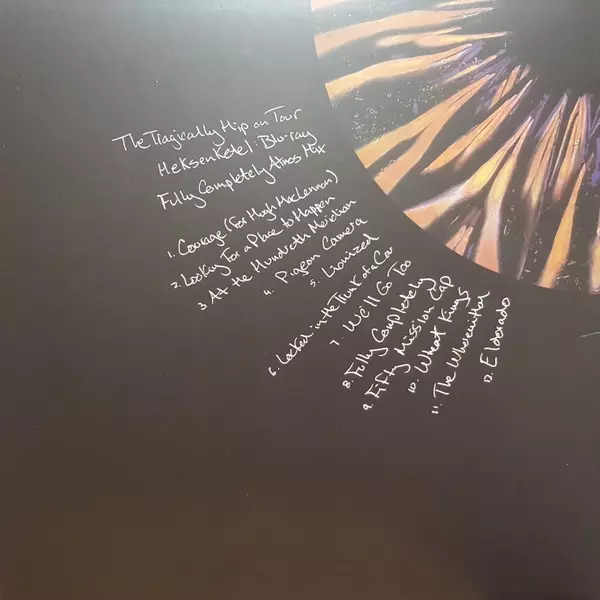 The Tragically Hip on Tour
Heksenketel: Blu-ray
Fully Completely Atmos Mix
1. Courage (For Hugh MacLennan)
2. Looking For a Place to Happen
3. At the Hundredth Meridian
4. Pigeon Camera
5. Lionized
6. Locked in the Trunk of a Car
7. We'll Go Too
8. Fully Completely
9. Fifty Mission Cap
10. Wheat Kings
11. The Wherewithal
12. Eldorado